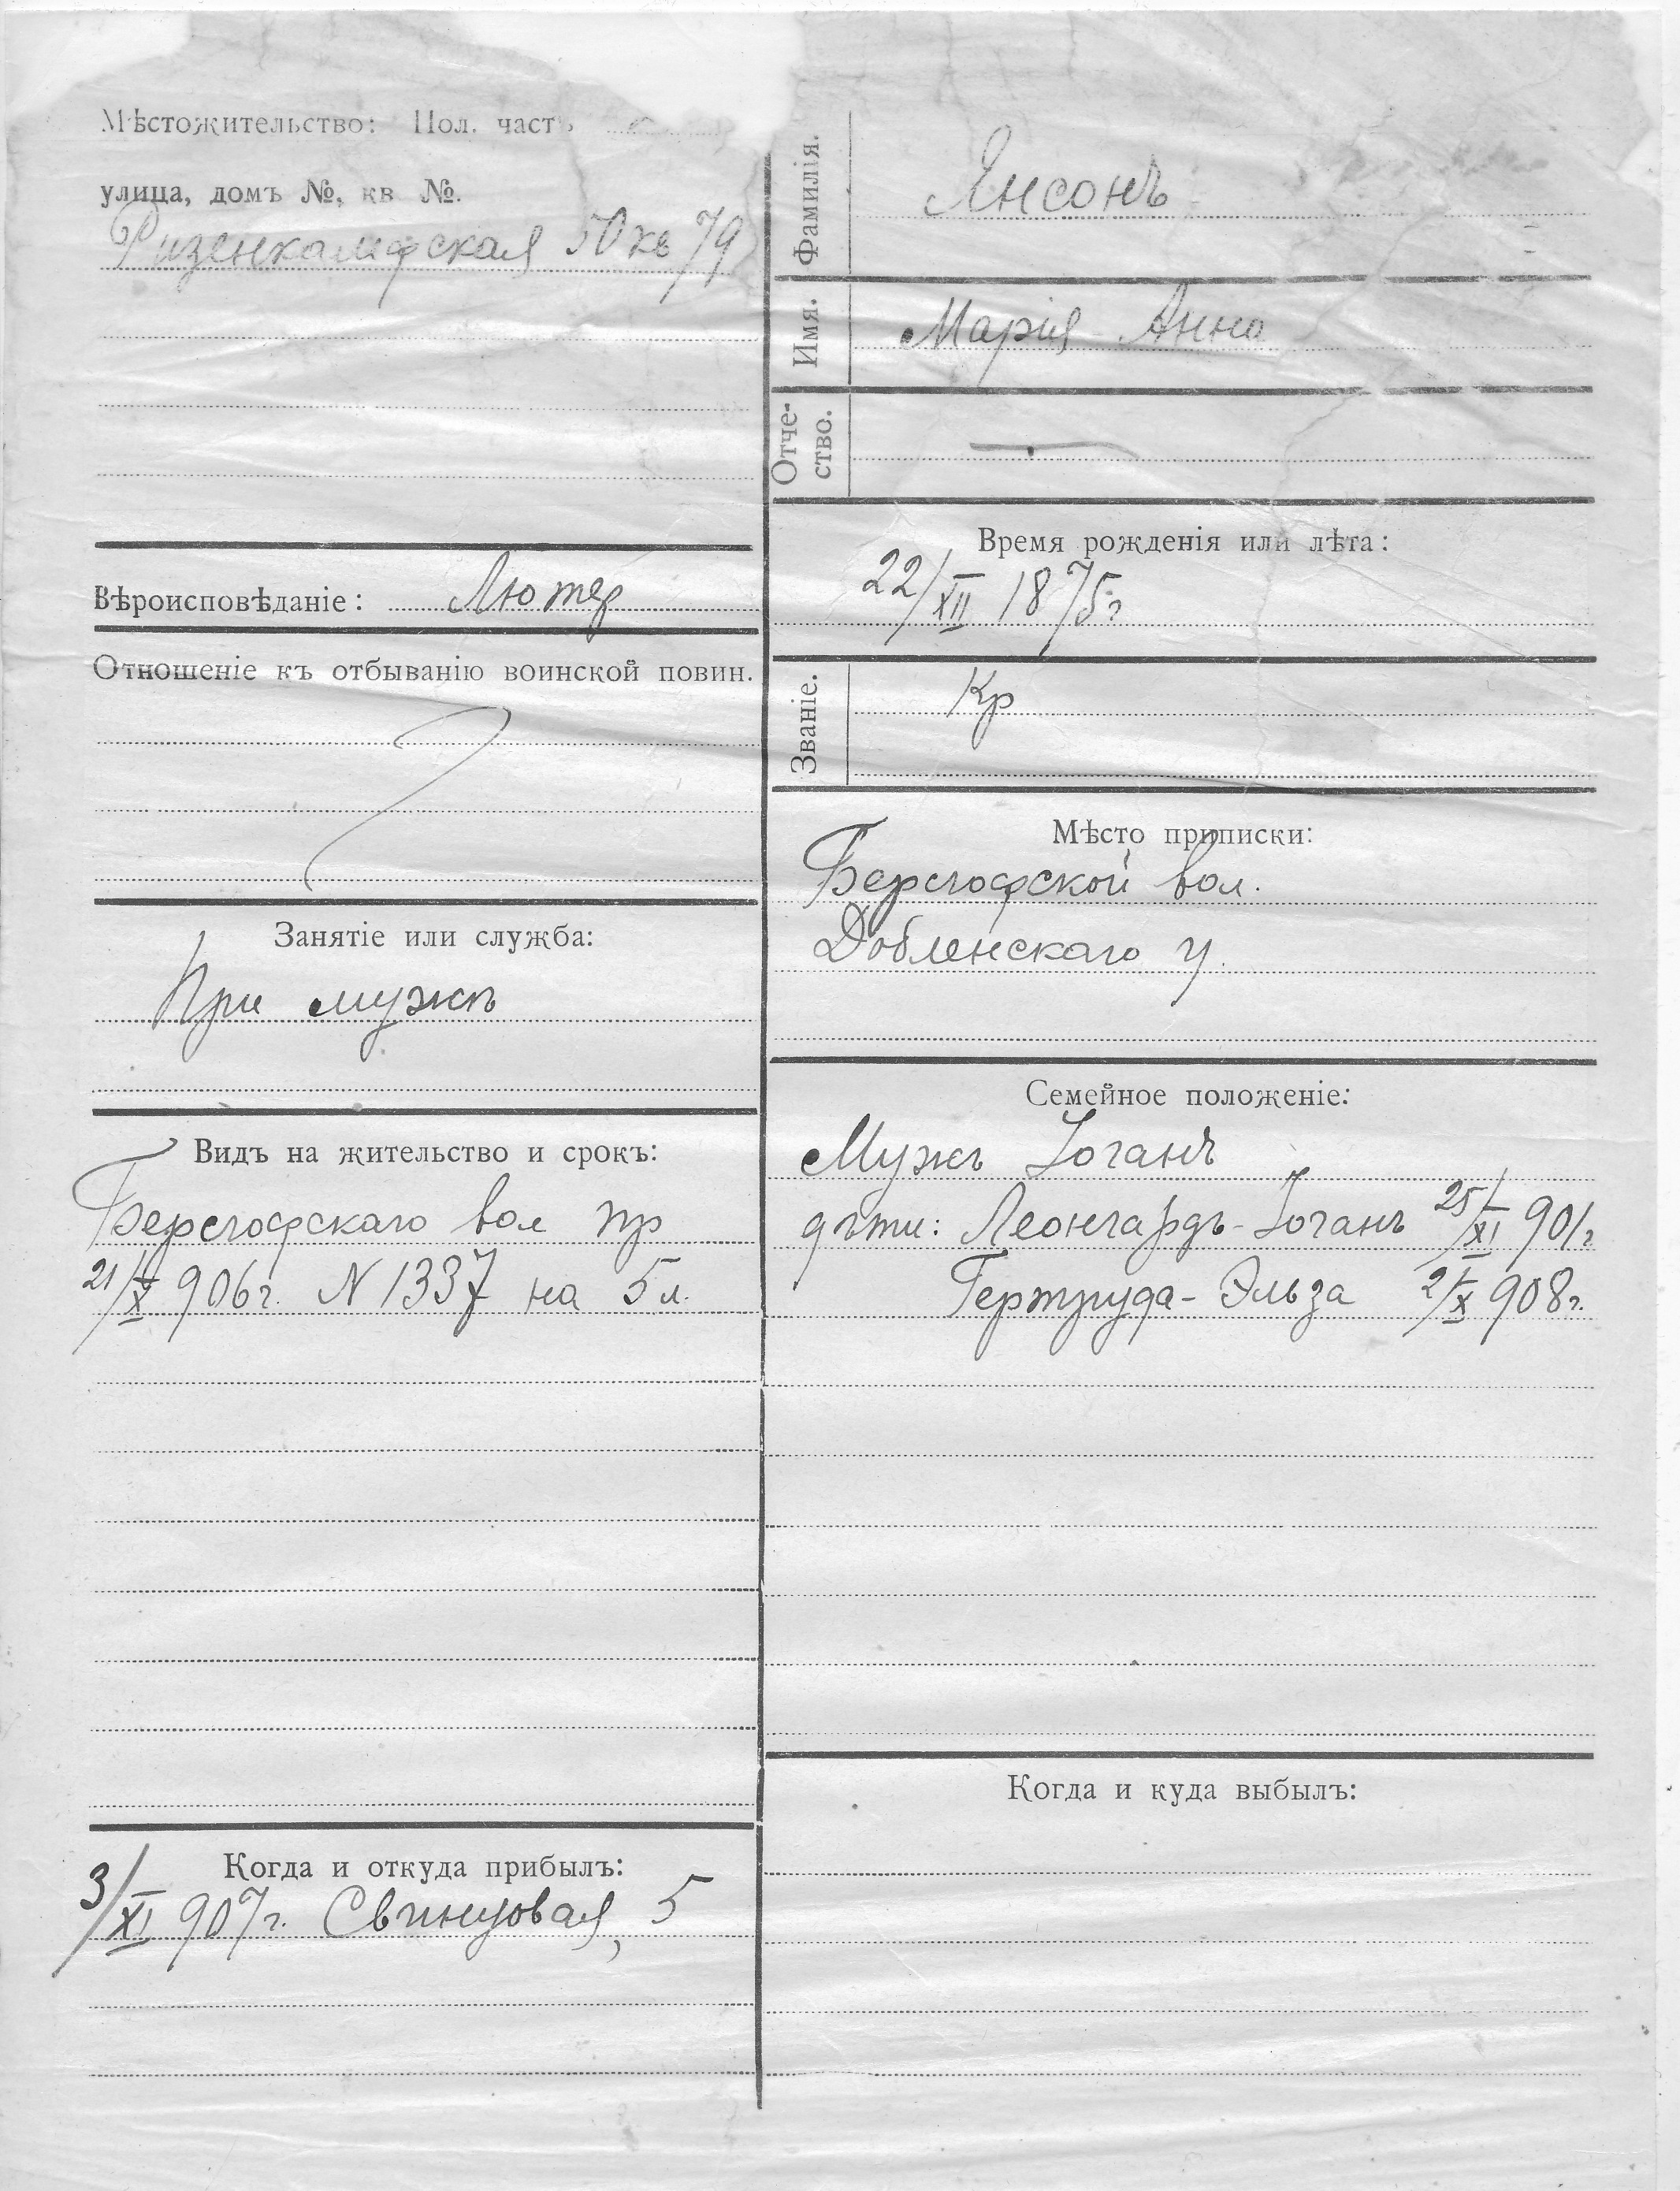 Мѣстожительство: Пол. часть
улица, домъ №, кв №.
Ризенкампфская 50 кв 79
Вѣроисповѣданіе: Лютер
Отношеніе къ отбыванію воинской повин.
Занятіе или служба:
При мужѣ
Видъ на жительство и срокъ:
Бергофскаго вол пр
21/X 906г. N 1337 на 5 л.
Когда и откуда прибылъ:
3/XI 907г. Свинцовая, 5
Фамилія. Янсонъ
Имя. Марія Анна
Отче-
ство. —
Время рожденія или лѣта:
22/XII 1875г
Званіе. Кр
Мѣсто приписки:
Бергофской вол.
Добленскаго у.
Семейное положеніе:
Мужъ Іоганъ
дѣти: Леонгардъ-Іоганъ 25/XI 901г
Гертруда-Эльза 2/X 908г.
Когда и куда выбылъ: